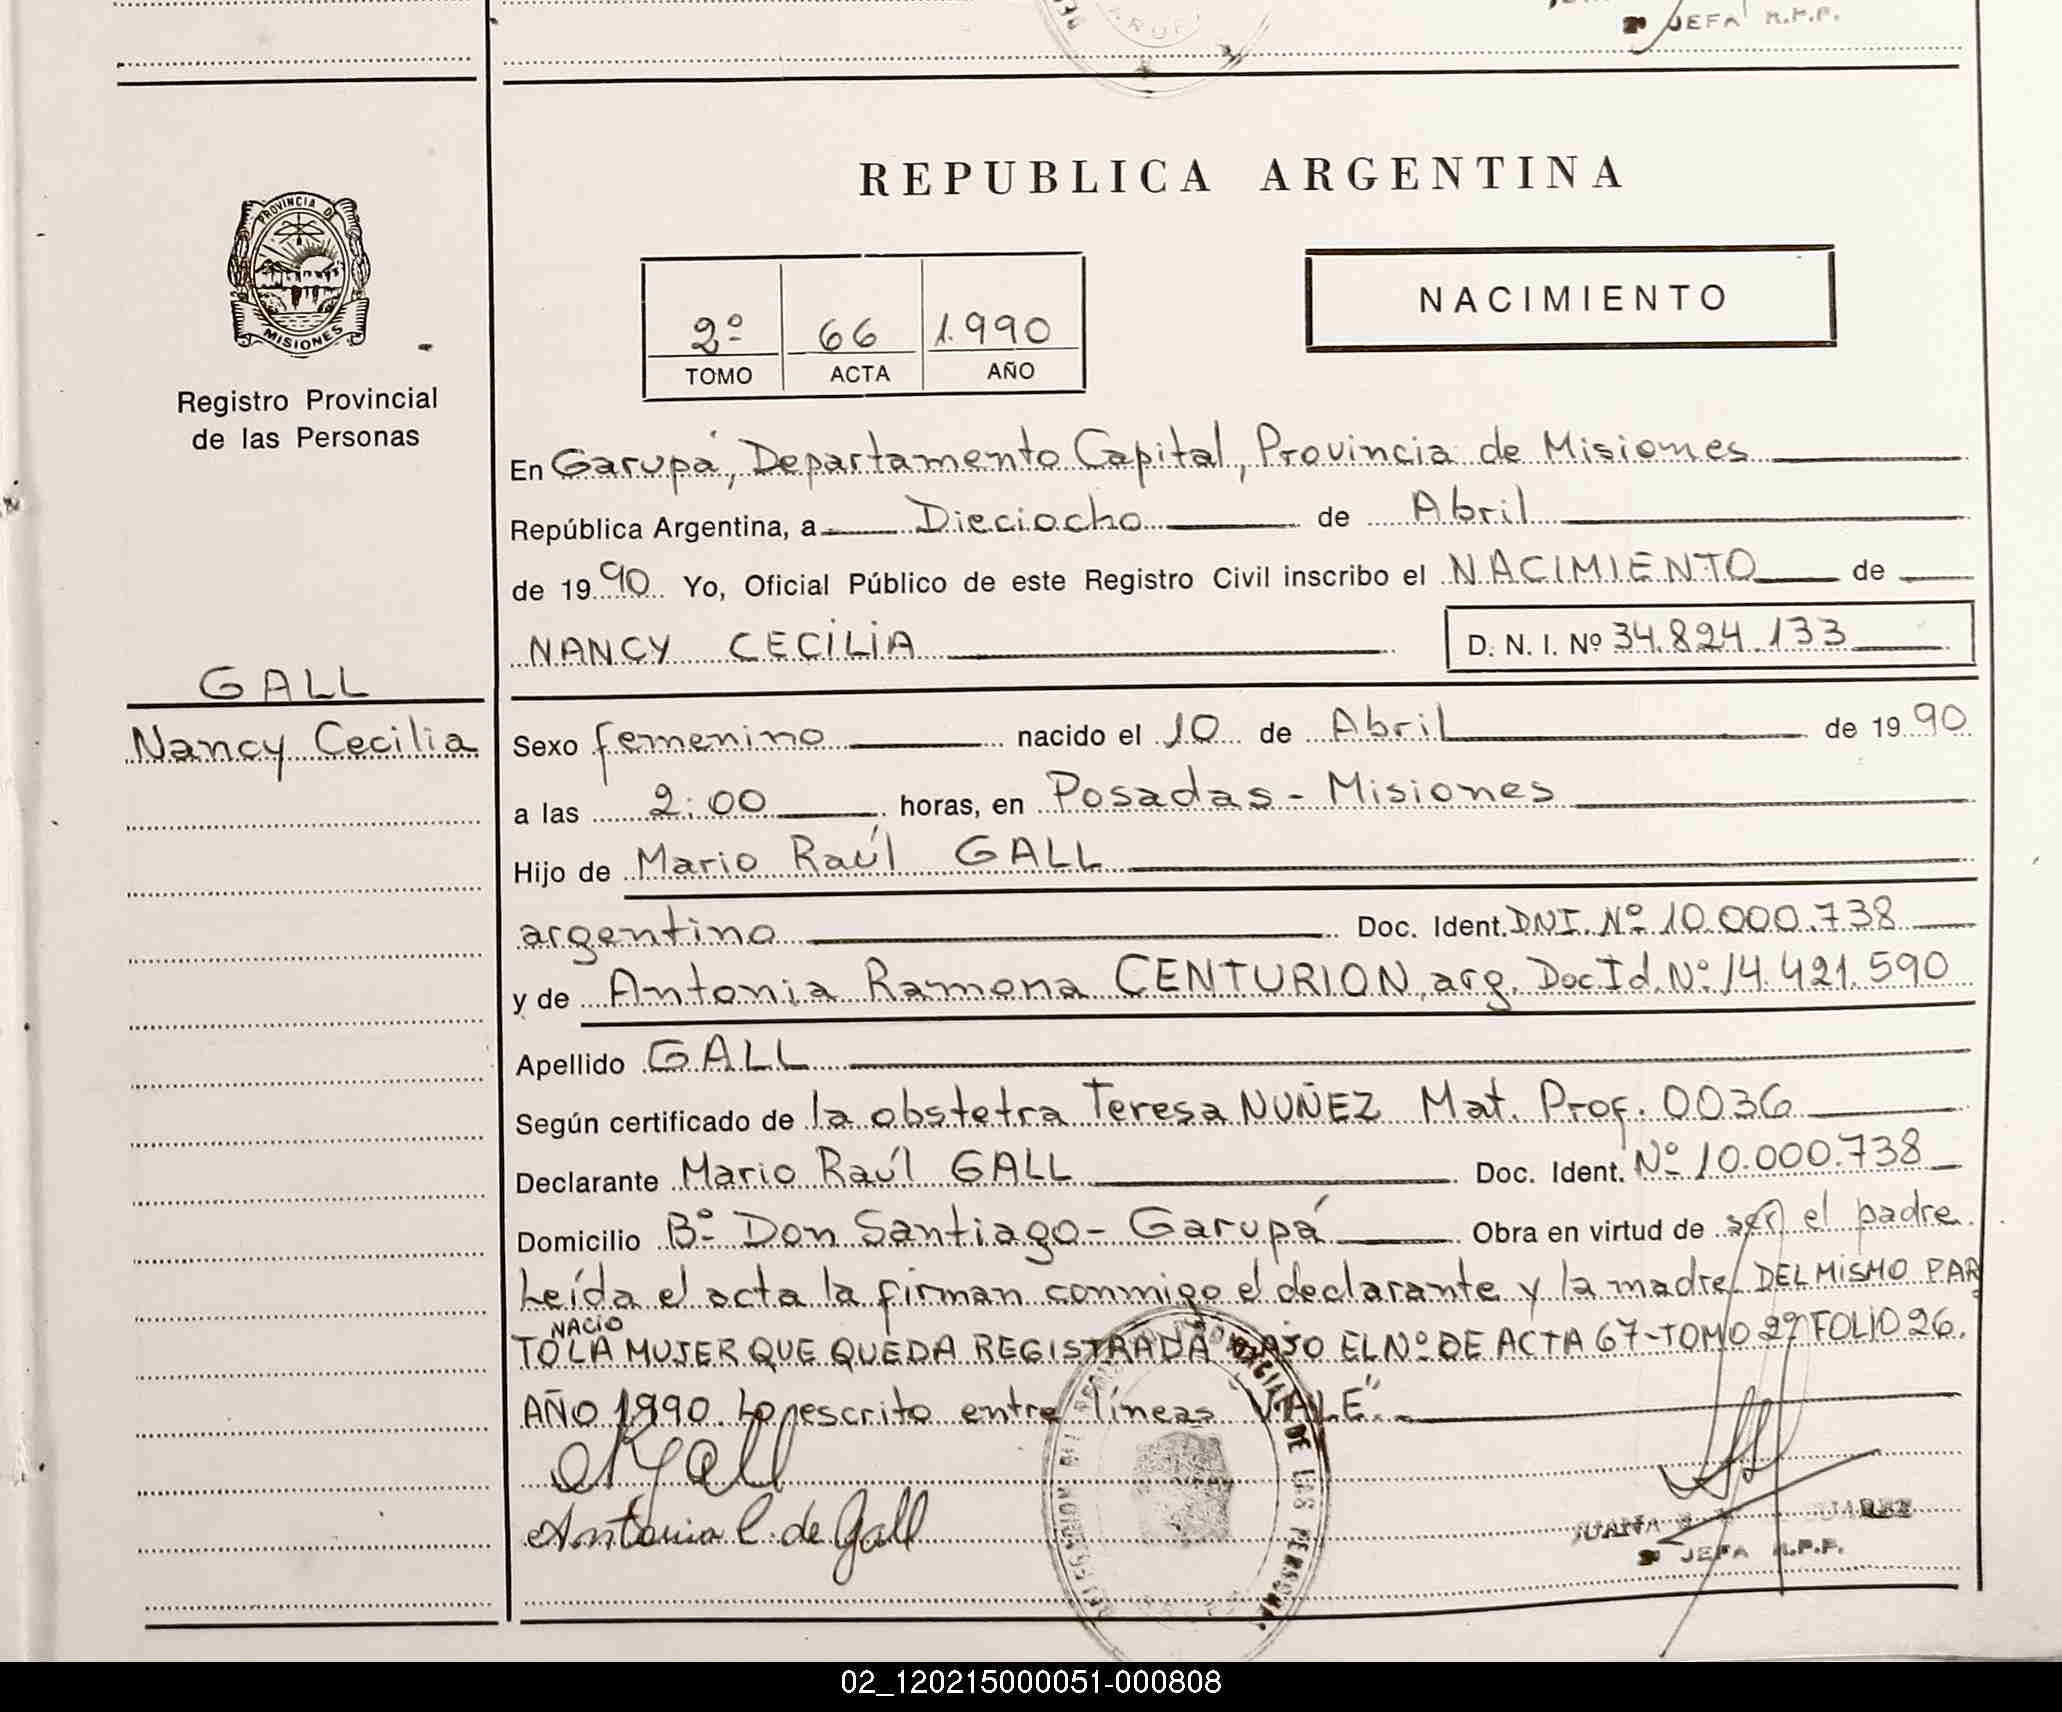 JEFA R.P.P.
REPUBLICA ARGENTINA
PROVINCIA DE
MISIONES
Registro Provincial
de las Personas
NACIMIENTO
2º 66 1.990
TOMO ACTA AÑO
En Garupá, Departamento Capital, Provincia de Misiones
República Argentina, a Dieciocho de Abril
de 1990 Yo, Oficial Público de este Registro Civil inscribo el NACIMIENTO de
NANCY CECILIA D. N. I. Nº 34.824.133
GALL
Nancy Cecilia
Sexo femenino nacido el 10 de Abril de 1990
a las 2:00 horas, en Posadas - Misiones
Hijo de Mario Raúl GALL
argentino Doc. Ident. DNI. Nº 10.000.738
y de Antonia Ramona CENTURION, arg. Doc Id. Nº 14.421.590
Apellido GALL
Según certificado de la obstetra Teresa NUÑEZ Mat. Prof. 0036
Declarante Mario Raúl GALL Doc. Ident. Nº 10.000.738
Domicilio Bº Don Santiago - Garupá Obra en virtud de ser el padre.
Leída el acta la firman conmigo el declarante y la madre. DEL MISMO PAR
NACIO
TO LA MUJER QUE QUEDA REGISTRADA BAJO EL Nº DE ACTA 67-TOMO 2º FOLIO 26.
AÑO 1990. Lo escrito entre líneas "VALE".
Gall
Antonia C. de Gall
JUANA SUAREZ
JEFA R.P.P.
02_120215000051-000808